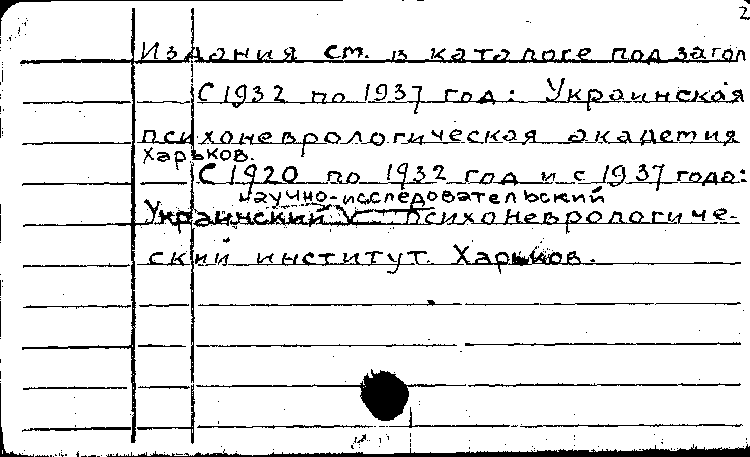 2
Издания см. в каталоге под загол
С 1932 по 1937 год: Украинская
психоневрологическая академия
Харьков.
С 1920 по 1932 год и с 1937 года:
научно-исследовательский
Украинский психоневрологиче-
ский институт. Харьков.